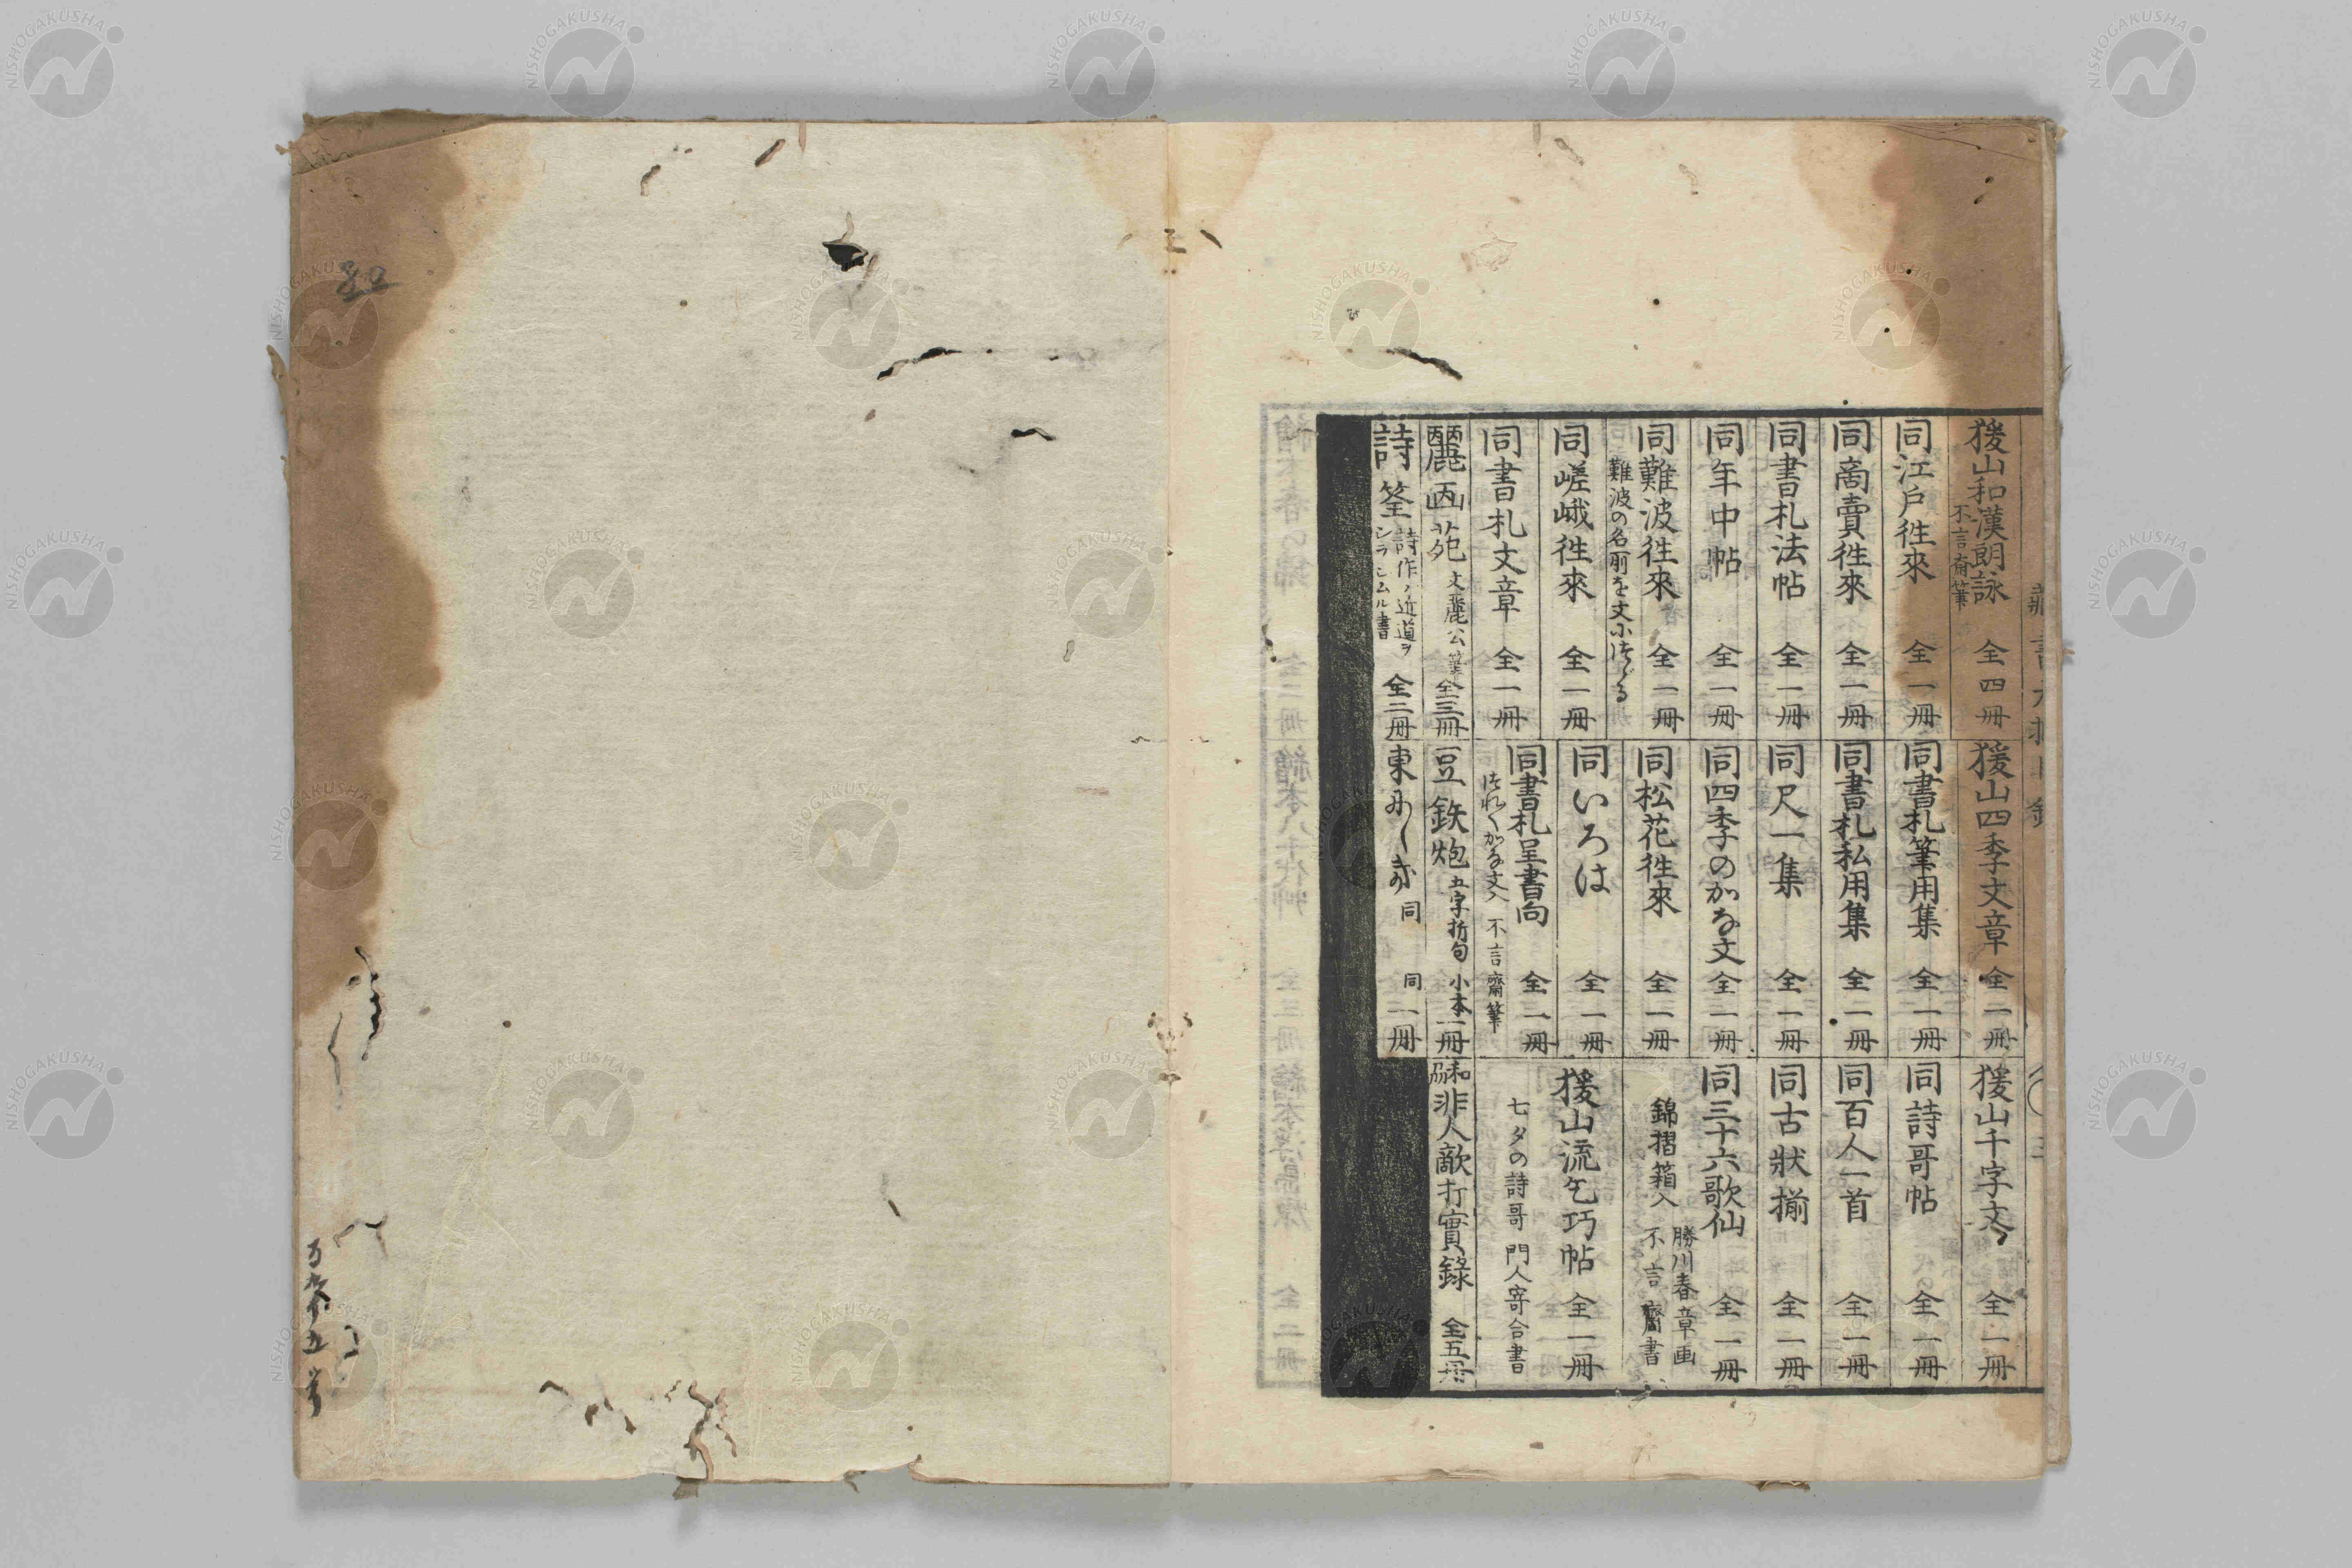 猨山和漢朗詠 不言斎筆 全四冊
同江戸徃來 全一冊
同商賣徃來 全一冊
同書札法帖 全一冊
同年中帖 全一冊
同難波徃來 全一冊
難波の名所を文につゞる
同嵯峨徃來 全一冊
同書札文章 全一冊
麗画苑 文麗公筆 全三冊
詩筌 詩作ノ近道ヲシラシムル書 全二冊
猨山四季文章 全二冊
同書札筆用集 全一冊
同書札私用集 全二冊
同尺一集 全一冊
同四季のかな文 全一冊
同松花徃來 全一冊
同いろは 全一冊
同書札呈書向 全一冊
かな文入 不言齋筆
豆鉄炮 五字折句 小本一冊
東 同 同 一冊
猨山千字文 全一冊
同詩哥帖 全一冊
同百人一首 全一冊
同古狀揃 全一冊
同三十六歌仙 全一冊
勝川春章画
錦摺箱入 不言齋書
猨山流乞巧帖 全一冊
七夕の詩哥 門人寄合書
非人敵打實錄 全五冊
NISHOGAKUSHA